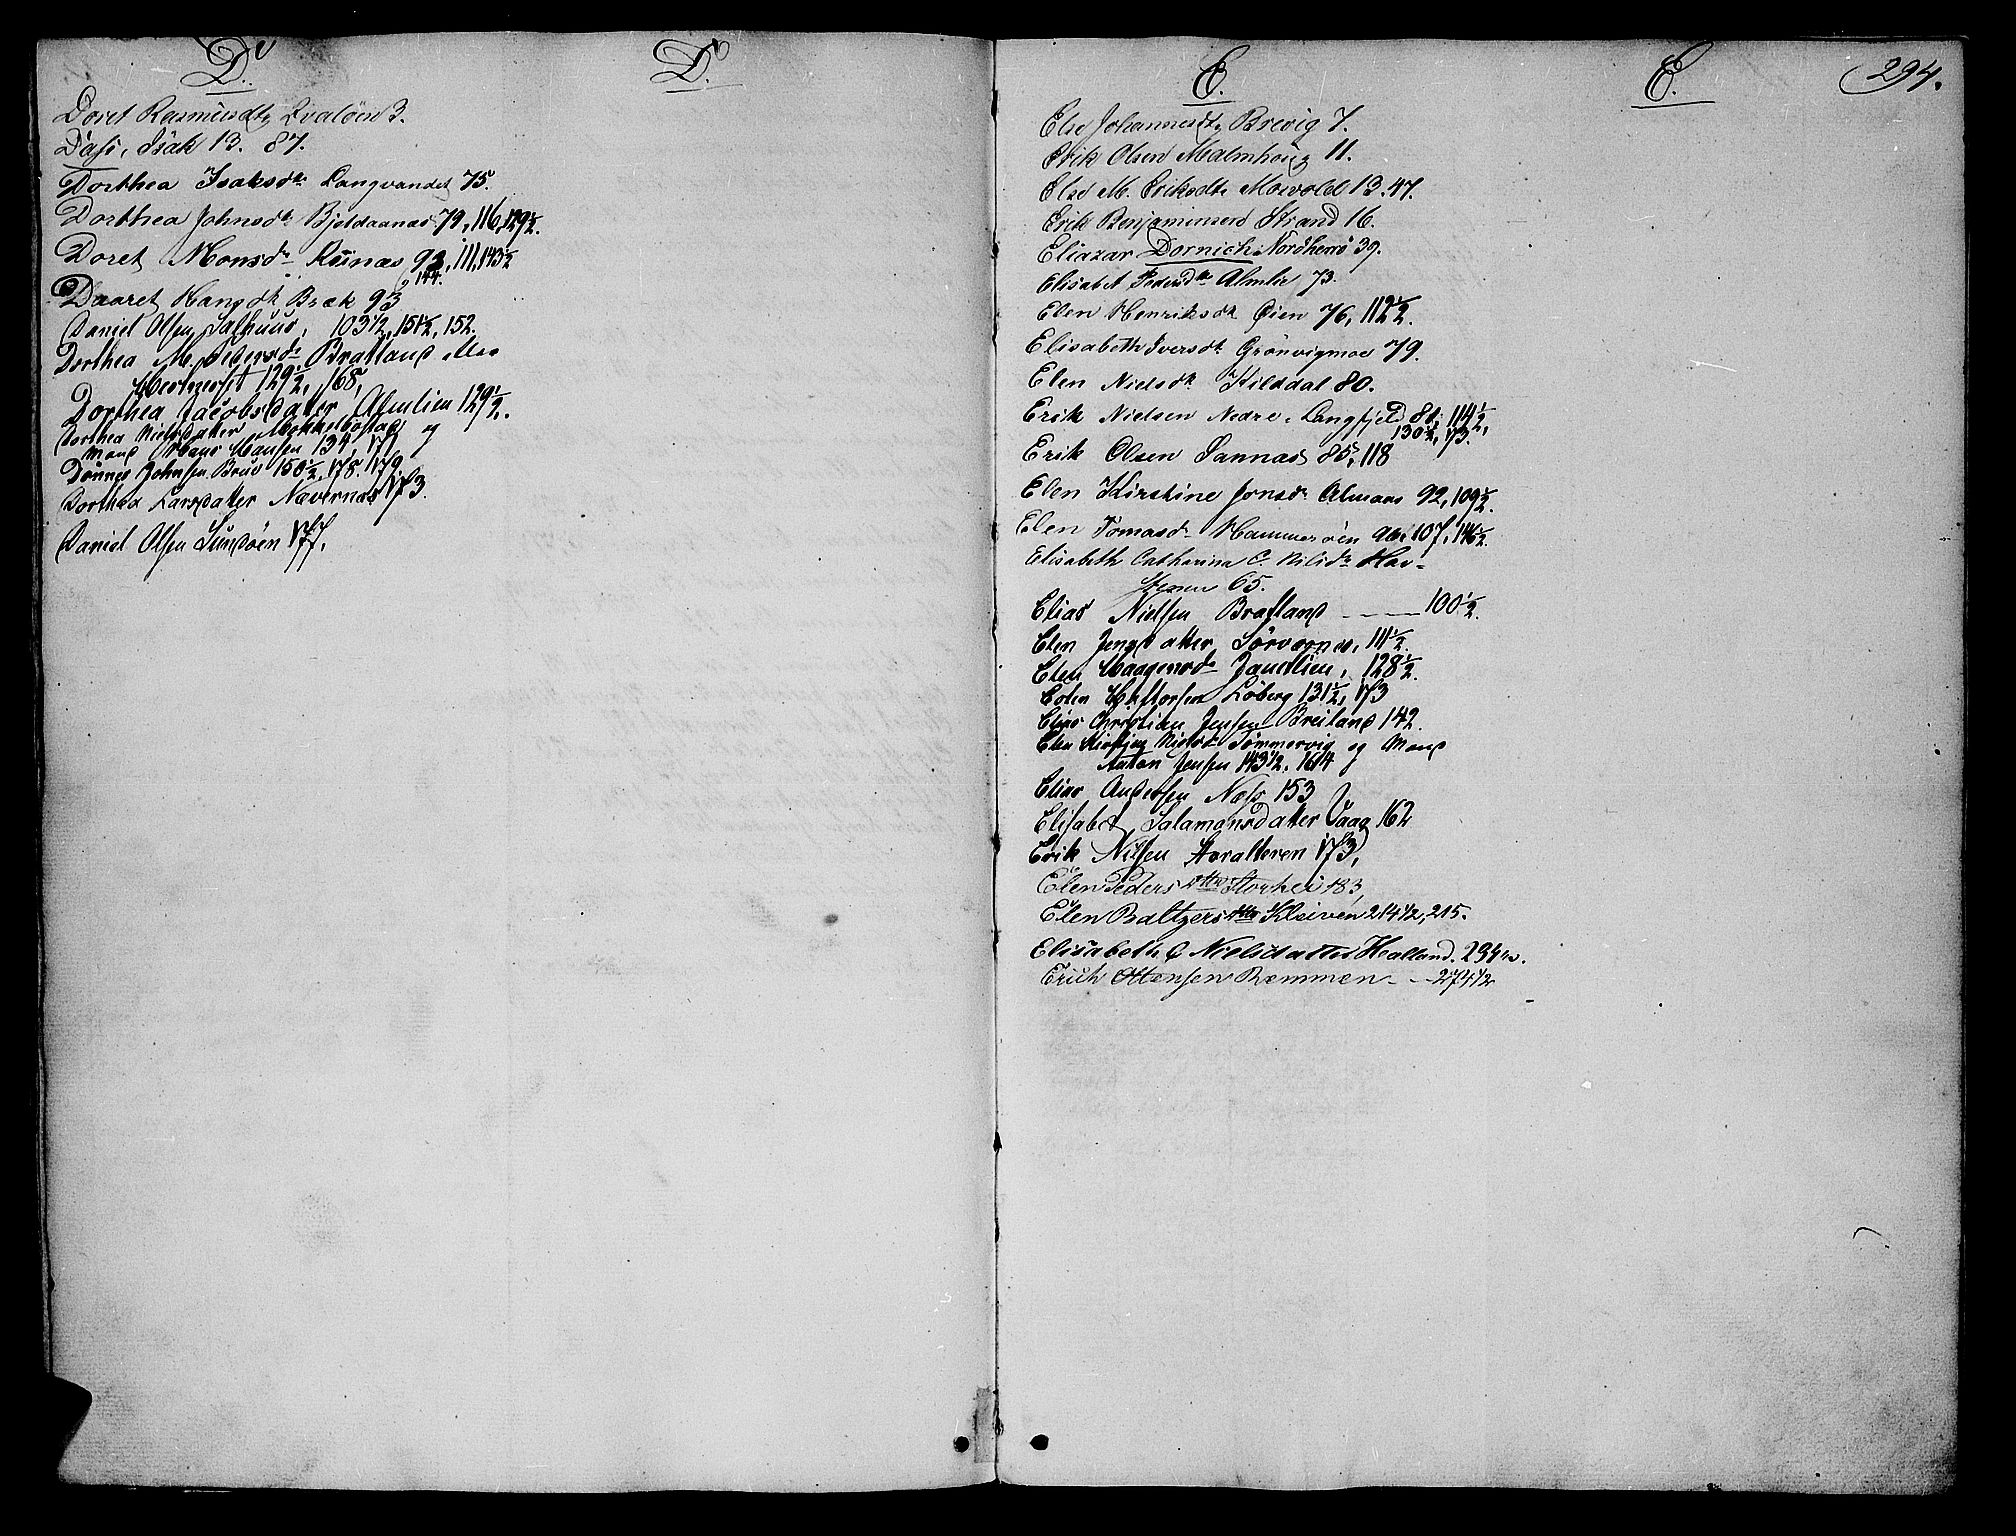 D.
D.
Doret Rasmusdtr Qvaløen 3.
Dass, Isak 13. 87.
Dorthea Isaksdtr Langvandet 75.
Dorthea Johnsdtr Bjeldaanæs 79, 116, 129½.
Doret Monsdr Reinæs 93, 111, 143½
144.
Daaret Hansdtr Bræk 93
Daniel Olsen Salhuus, 103½, 151½, 152.
Dorthea M. Pedersdr Bratland eller
129½, 168,
Dorthea Jacobsdatter Almlien 129½.
Dorthea Nielsdatter og
Mand Hans Hansen 134, 171
Dønnes Johnsen Bruo 150½, 178. 179.
Dorthea Larsdatter Navernæs 173.
Daniel Olsen Sundøen 177.
E.
E.
294.
Else Johannesdtr Brevig 7.
Erik Olsen Malmhoug 11.
Else M. Eriksdtr Moevold 13. 47.
Erik Benjaminsen Strand 16.
Eliazar Dornich Nordherrø 39.
Elisabet Pedersdtr Almlie 73.
Elen Henriksdtr Øien 76, 112½.
Elisabeth Iversdtr Grønvigmoe 79.
Elen Nielsdtr Kilddal 80.
Erik Nielsen Nedre-Langfjeld 81, 114½,
130½, 173.
Erik Olsen Sannæs 85, 118
Elen Kirstine Jonsdr Almaas 92, 109½.
Elen Tomasdr Hammerøen 107, 146½.
Elisabeth Catharina C. Nilsdr Hav-
stenen 65.
Elias Nielsen Bratland — — 100½.
Elen Jensdatter Sørværnes, 111½.
Elen Haagensdr Jamtlien, 128½.
Eden Hastorsen Løberg 131½, 173
Elias Christian Jensen Breiland 142.
Elen Kirstine Nielsdr Tømmervig og Mand
Anton Jensen 143½. 164
Elias Andersen Næss 153
Elisabet Salamonsdatter Vaag 162
Erik Nilsen Storalteren 173,
Elen Pedersdtter Storhei 183,
Elen Baltzersdtter Kleiven 214½, 215.
Elisabeth C Nielsdatter Halland. 234½.
Erich Ottensen Remmen - - 274½